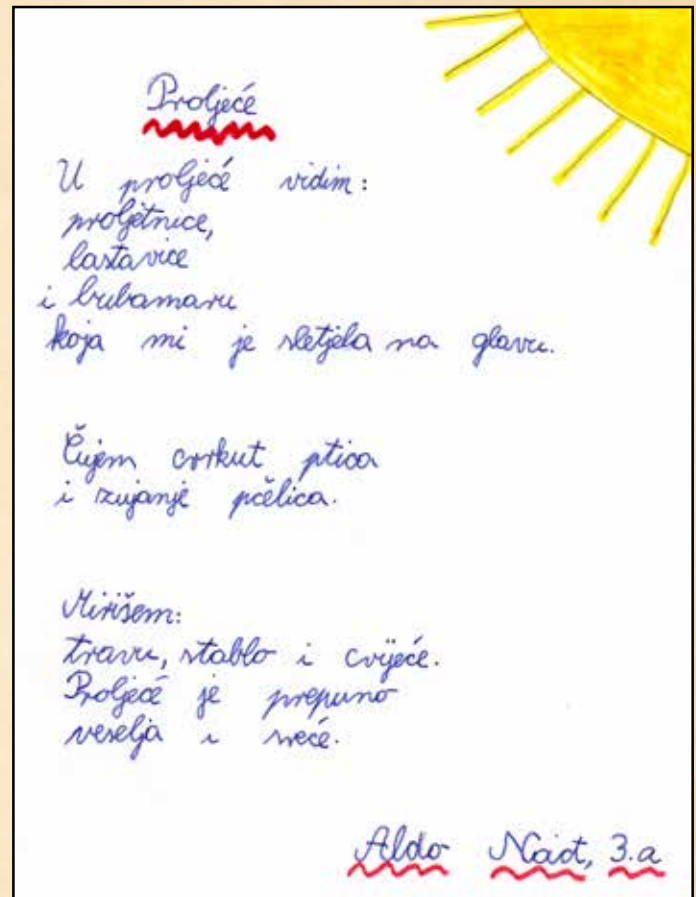 Proljeće
U proljeće vidim:
proljetnice,
lastavice
i bubamaru
koja mi je sletjela na glavu.
Čujem cvrkut ptica
i zujanje pčelica.
Mirišem:
travu, stablo i cvijeće.
Proljeće je prepuno
veselja i sreće.
Aldo 3.a